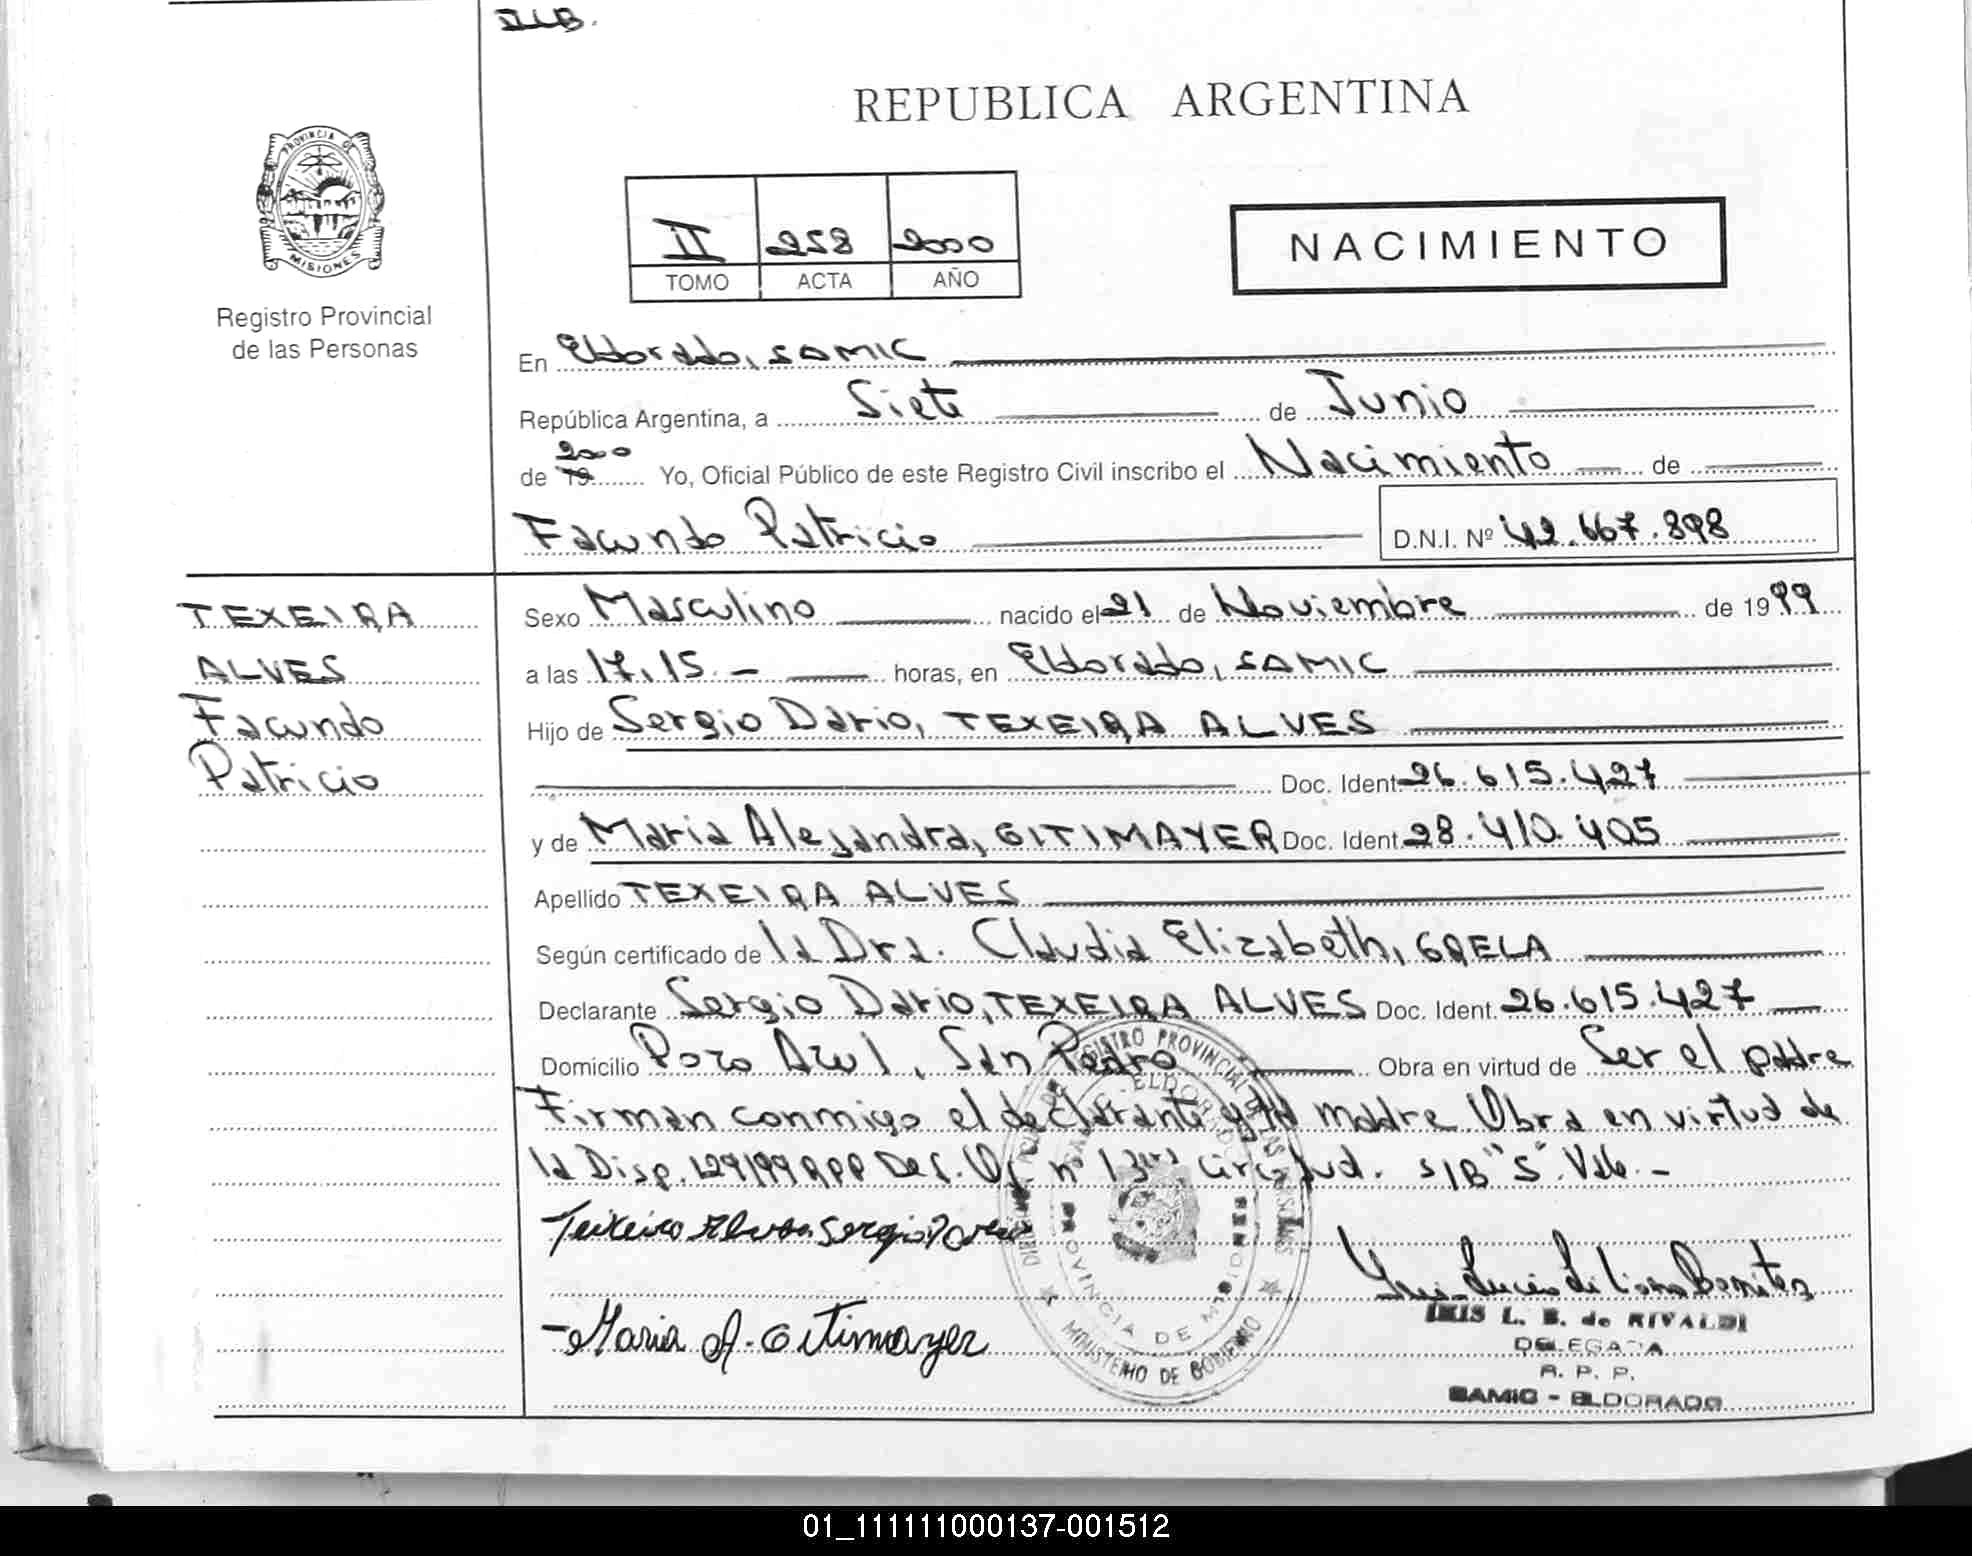 REPUBLICA ARGENTINA
PROVINCIA DE
MISIONES
Registro Provincial
de las Personas
II 258 2000
TOMO ACTA AÑO
NACIMIENTO
En Eldorado, SAMIC
República Argentina, a Siete de Junio
de 19 2000 Yo, Oficial Público de este Registro Civil inscribo el Nacimiento de
Facundo Patricio D.N.I. Nº 42.667.898
TEXEIRA
ALVES
Facundo
Patricio
Sexo Masculino nacido el 21 de Noviembre de 1999
a las 17.15.- horas, en Eldorado, SAMIC
Hijo de Sergio Dario, TEXEIRA ALVES
Doc. Ident. 26.615.427
y de Maria Alejandra, GITIMAYER Doc. Ident. 28.410.405
Apellido TEXEIRA ALVES
Según certificado de la Dra. Claudia Elizabeth, GRELA
Declarante Sergio Dario, TEXEIRA ALVES Doc. Ident. 26.615.427
Domicilio Pozo Azul, San Pedro Obra en virtud de Ser el padre
Firman conmigo el declarante y la madre Obra en virtud de
la Disp. 129/99 RPP Def. Of nº 1 3ra circ Jud. S/B "S" Vale.-
Teixeira Alves Sergio Dario
Maria A. Gitimayer
IRIS L. B. de RIVALDI
DELEGADA
R. P. P.
SAMIC - ELDORADO
REGISTRO PROVINCIAL DE LAS PERSONAS
ELDORADO
PROVINCIA DE MISIONES
MINISTERIO DE GOBIERNO
01_111111000137-001512